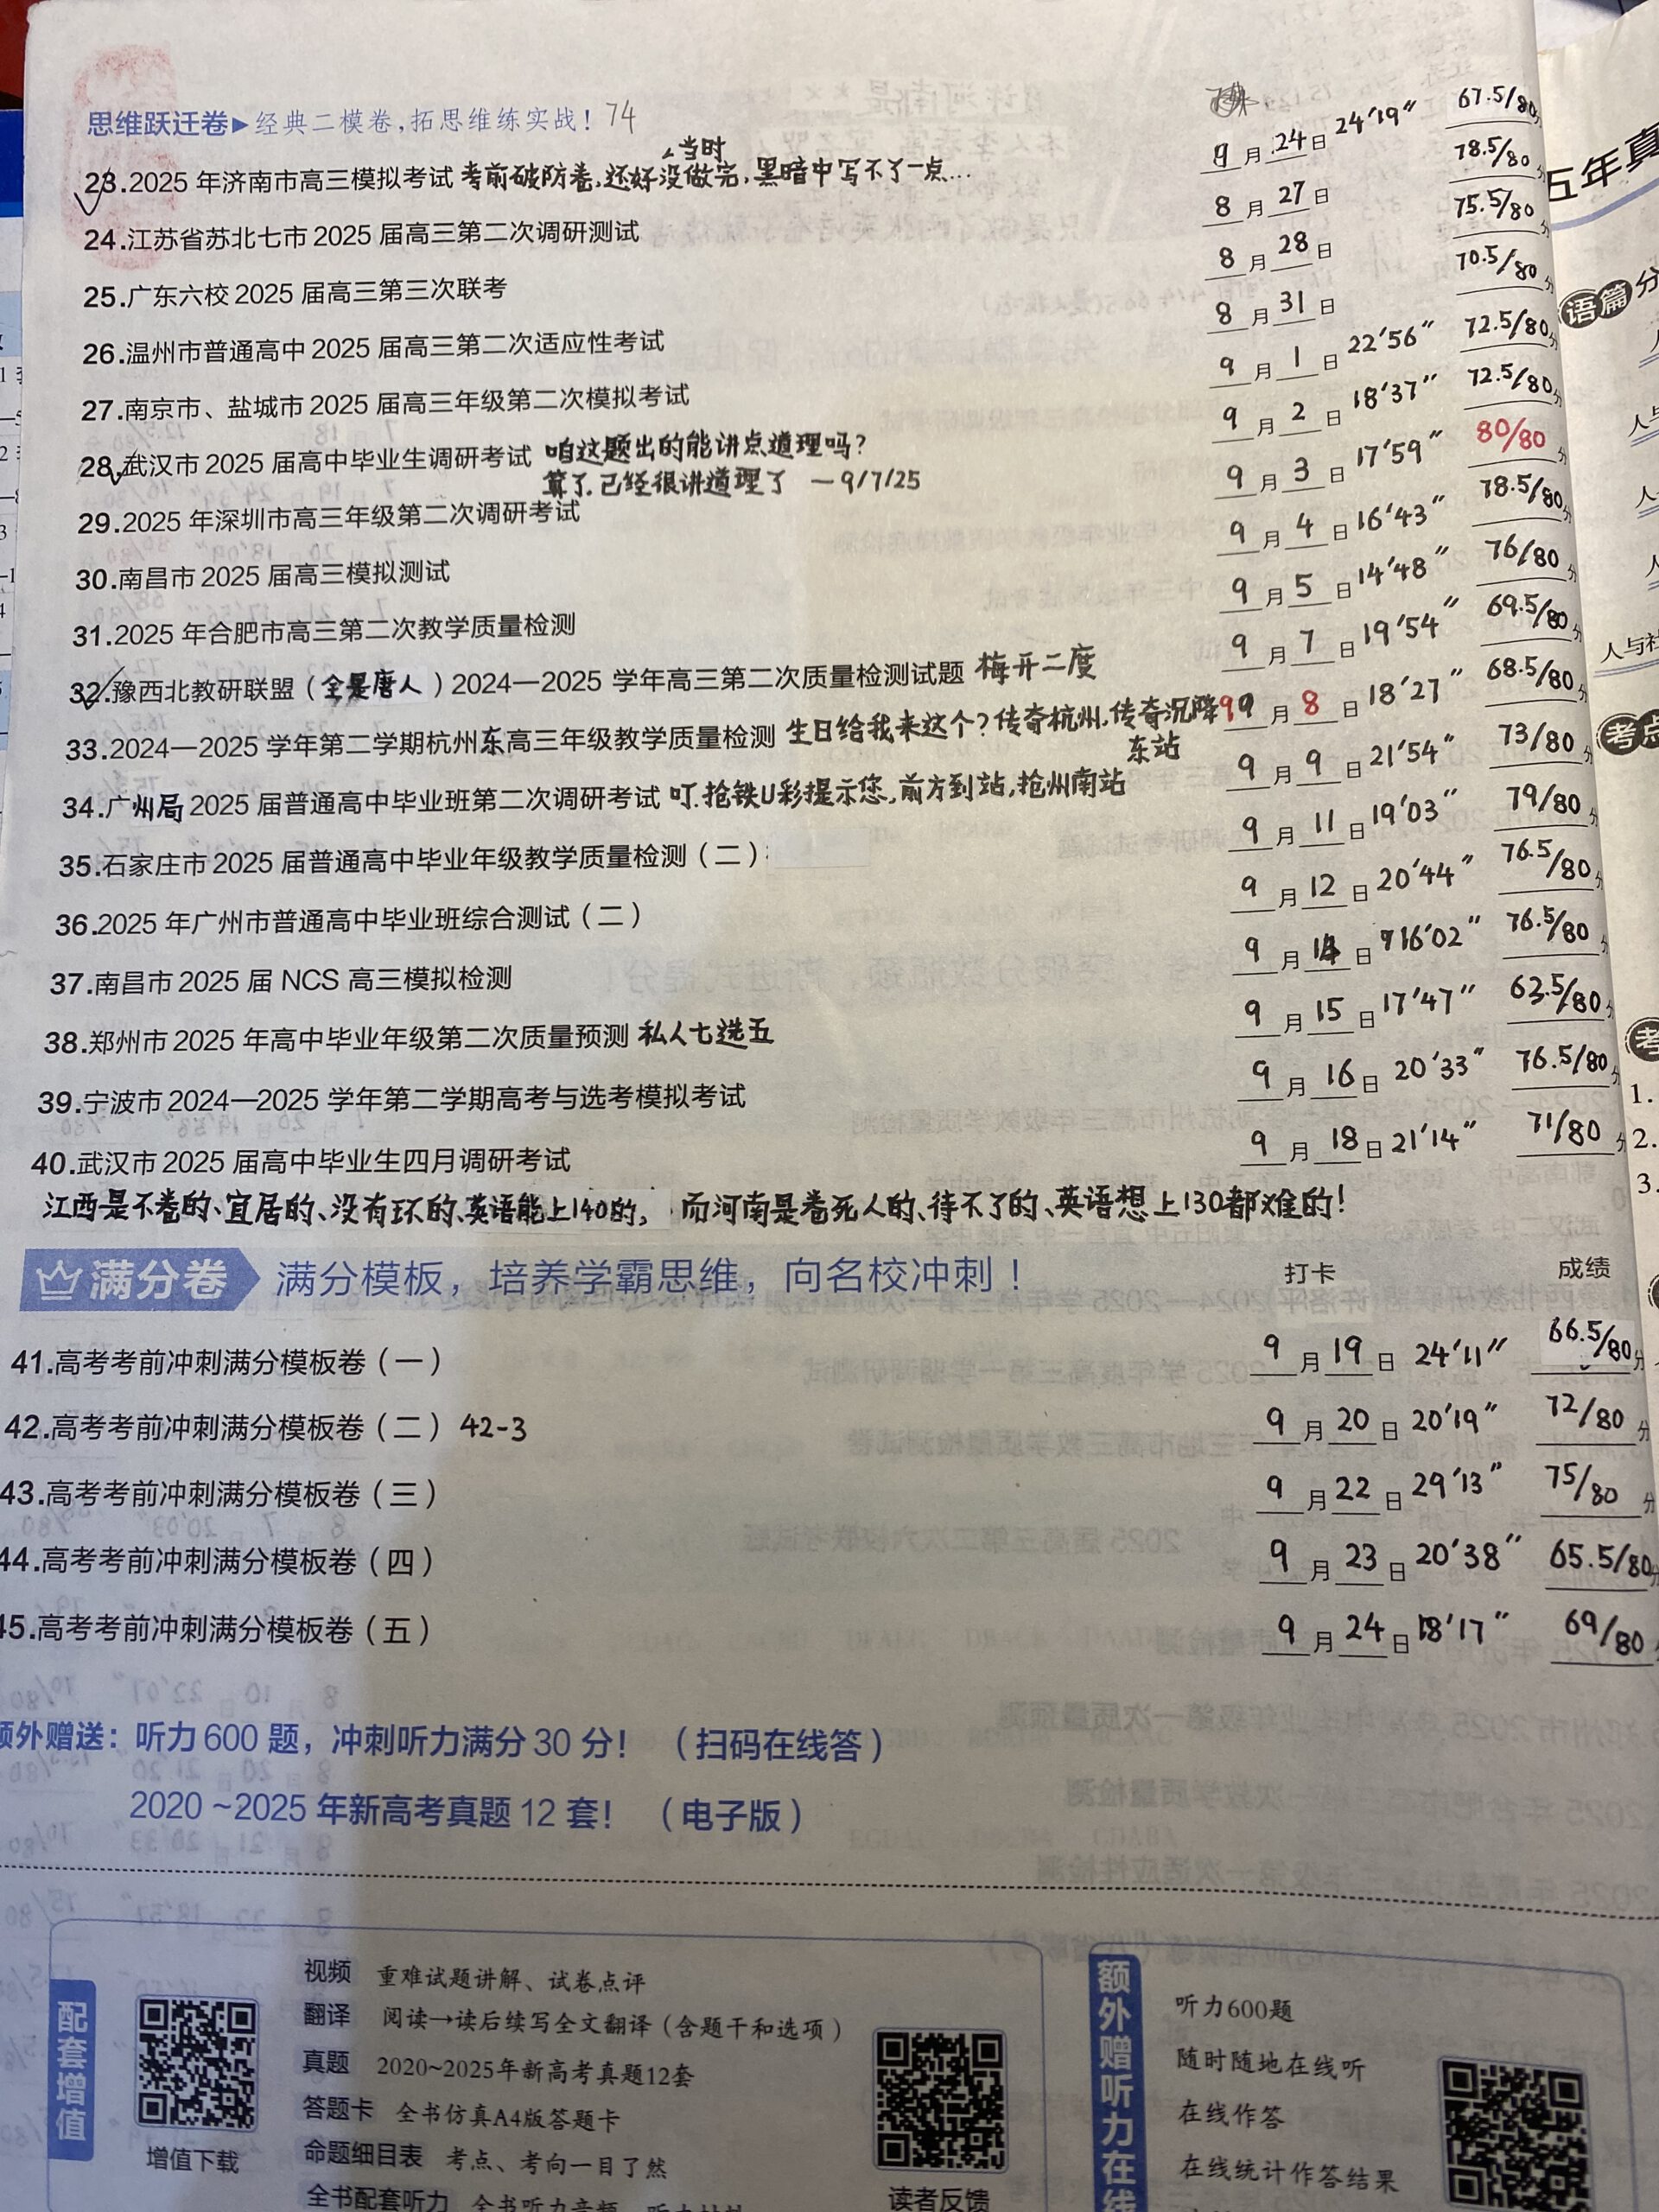 思维跃迁卷▶经典二模卷,拓思维练实战! 74
23.2025 年济南市高三模拟考试 考前破防卷,还好当时没做完,黑暗中写不了一点… 9月24日 24′19″ 67.5/80
24.江苏省苏北七市 2025 届高三第二次调研测试 8月27日 78.5/80
25.广东六校 2025 届高三第三次联考 8月28日 75.5/80
26.温州市普通高中 2025 届高三第二次适应性考试 8月31日 70.5/80
27.南京市、盐城市 2025 届高三年级第二次模拟考试 9月1日 22′56″ 72.5/80
28.武汉市 2025 届高中毕业生调研考试 咱这题出的能讲点道理吗? 9月2日 18′37″ 72.5/80分
算了.已经很讲道理了 —9/7/25
29.2025 年深圳市高三年级第二次调研考试 9月3日 17′59″ 80/80分
30.南昌市 2025 届高三模拟测试 9月4日 16′43″ 78.5/80分
31.2025 年合肥市高三第二次教学质量检测 9月5日 14′48″ 76/80分
32.豫西北教研联盟(全是唐人)2024—2025 学年高三第二次质量检测试题 梅开二度 9月7日 19′54″ 69.5/80分
33.2024—2025 学年第二学期杭州东高三年级教学质量检测 生日给我来这个?传奇杭州,传奇沉降 99月8日 18′27″ 68.5/80分
东站
34.广州局 2025 届普通高中毕业班第二次调研考试 叮.抢铁U彩提示您,前方到站,抢州南站 9月9日 21′54″ 73/80分
35.石家庄市 2025 届普通高中毕业年级教学质量检测(二) 9月11日 19′03″ 79/80分
36.2025 年广州市普通高中毕业班综合测试(二) 9月12日 20′44″ 76.5/80分
37.南昌市 2025 届 NCS 高三模拟检测 9月14日 16′02″ 76.5/80分
38.郑州市 2025 年高中毕业年级第二次质量预测 私人七选五 9月15日 17′47″ 63.5/80分
39.宁波市 2024—2025 学年第二学期高考与选考模拟考试 9月16日 20′33″ 76.5/80分
40.武汉市 2025 届高中毕业生四月调研考试 9月18日 21′14″ 71/80分
江西是不卷的、宜居的、没有环的、英语能上140的, 而河南是卷死人的、待不了的、英语想上130都难的!
满分卷 满分模板,培养学霸思维,向名校冲刺! 打卡 成绩
41.高考考前冲刺满分模板卷(一) 9月19日 24′11″ 66.5/80分
42.高考考前冲刺满分模板卷(二) 42-3 9月20日 20′19″ 72/80分
43.高考考前冲刺满分模板卷(三) 9月22日 29′13″ 75/80分
44.高考考前冲刺满分模板卷(四) 9月23日 20′38″ 65.5/80分
45.高考考前冲刺满分模板卷(五) 9月24日 18′17″ 69/80分
额外赠送:听力 600 题,冲刺听力满分 30 分! (扫码在线答)
2020 ~2025 年新高考真题 12 套! (电子版)
配套增值
增值下载
视频 重难试题讲解、试卷点评
翻译 阅读→读后续写全文翻译(含题干和选项)
真题 2020~2025年新高考真题12套
答题卡 全书仿真A4版答题卡
命题细目表 考点、考向一目了然
全书配套听力
读者反馈
额外赠听力在线
听力600题
随时随地在线听
在线作答
在线统计作答结果
五年真
语篇分
考点
考
1.
2.
3.